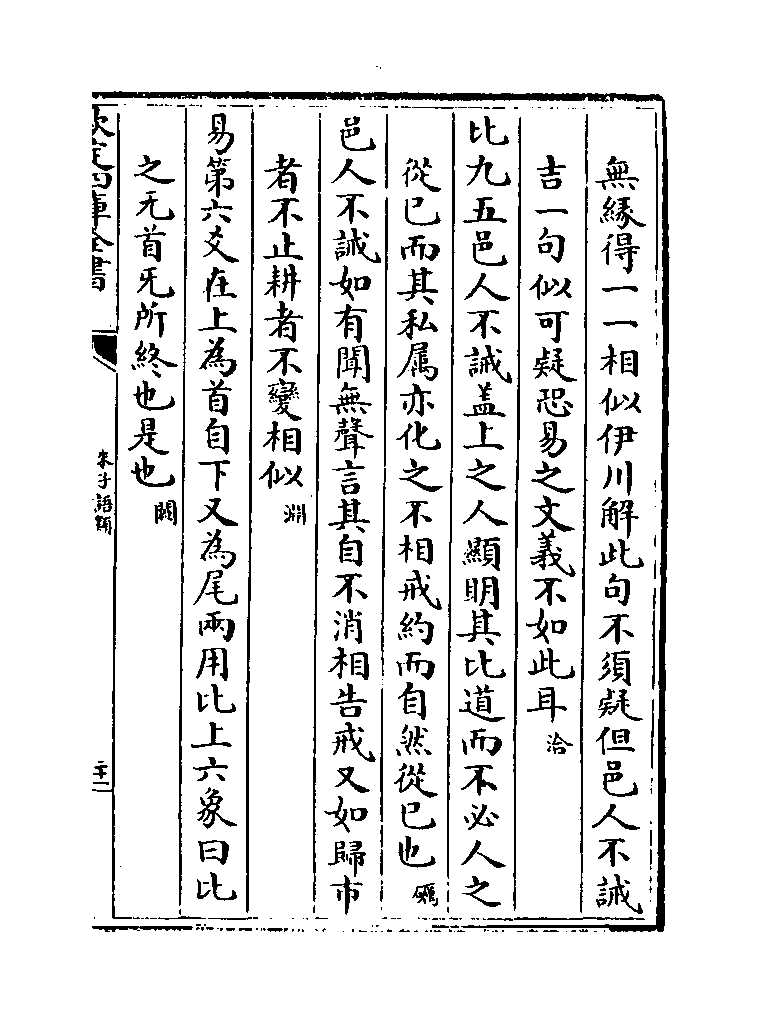 無縁得一一相似伊川解此句不須疑但邑人不誡
吉一句似可疑恐易之文義不如此耳 洽
比九五邑人不誡盖上之人顯明其比道而不必人之
從已而其私屬亦化之不相戒約而自然從已也 礪
邑人不誡如有聞無聲言其自不消相告戒又如歸市
者不止耕者不變相似 淵
易第六爻在上為首自下又為尾兩用比上六象曰比
之无首无所終也是也 閎
欽定四庫全書
朱子語類
二十二